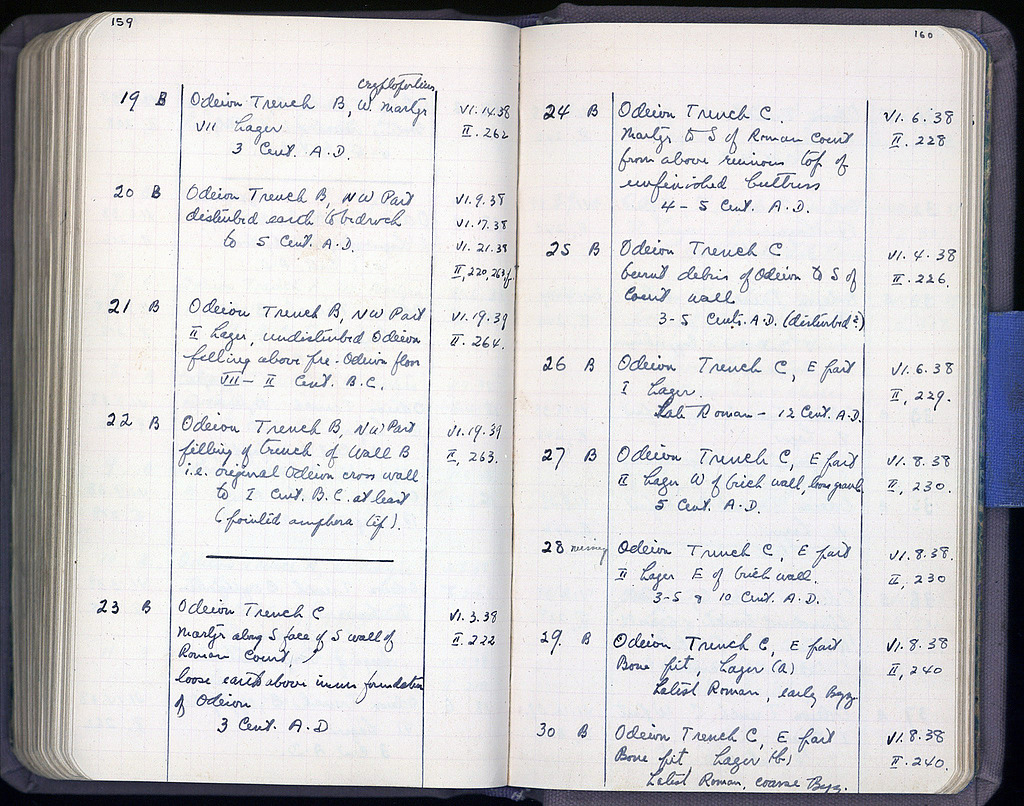 159
cryptoporticus
19 B Odeion Trench B, W. Martyr VI.14.38
VII Lager II.262
3 Cent. A.D.
20 B Odeion Trench B, NW Part VI.9.38
disturbed earth to bedrock VI.17.38
to 5 Cent. A.D. VI.21.38
II, 220, 263f
21 B Odeion Trench B, NW Part VI.19.39
II Lager, undisturbed Odeion II.264.
filling above pre-Odeion floor
VII - II Cent. B.C.
22 B Odeion Trench B, NW Part VI.19.39
filling of trench of Wall B II, 263.
i.e. original Odeion cross wall
to I Cent. B.C. at least
(pointed amphora tip).
23 B Odeion Trench C VI.3.38
Martyr along S face of S wall of II.222
Roman Court,
loose earth above inner foundation
of Odeion
3 Cent. A.D
160
24 B Odeion Trench C. VI.6.38
Martyr to S of Roman Court II.228
from above ruinous top of
unfinished buttress
4-5 Cent. A.D.
25 B Odeion Trench C VI.4.38
burnt debris of Odeion to S of II.226.
Court wall
3-5 Cents. A.D. (disturbed?)
26 B Odeion Trench C, E part VI.6.38
I Lager. II, 229.
Late Roman - 12 Cent. A.D.
27 B Odeion Trench C, E part VI.8.38
II Lager W of brick wall, loose gravel II, 230.
5 Cent. A.D.
28 missing Odeion Trench C, E part VI.8.38.
II Lager E of brick wall. II, 230
3-5 & 10 Cent. A.D.
29. B Odeion Trench C, E part VI.8.38
Bone pit, Lager (a) II, 240
Latest Roman, early Byz.
30 B Odeion Trench C, E part VI.8.38
Bone pit, Lager (b) II.240.
Latest Roman, coarse Byz.